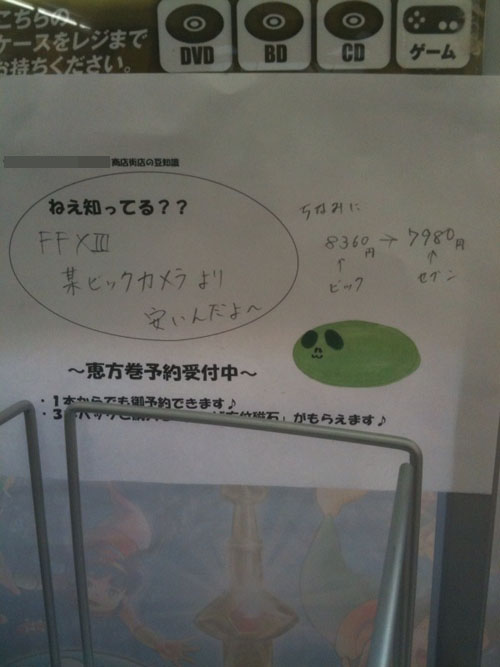 こちらの
ケースをレジまで
お持ちください。
DVD
BD
CD
ゲーム
商店街店の豆知識
ねえ知ってる？？
FFXIII
某ビックカメラより
安いんだよ〜
ちなみに
8360円→7980円
↑ ↑
ビック セブン
～恵方巻予約受付中～
・1本からでも御予約できます♪
・3
がもらえます♪